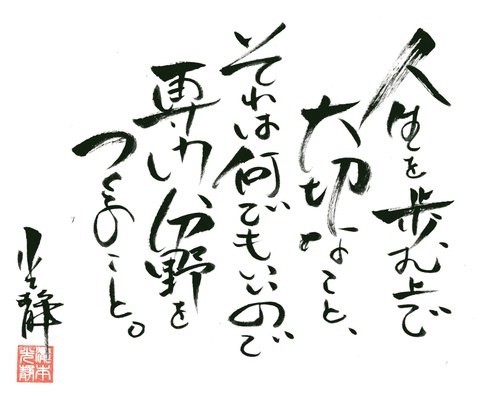 人生を歩む上で
大切なこと、
それは何でもいいので
専門分野を
つくること。
光静